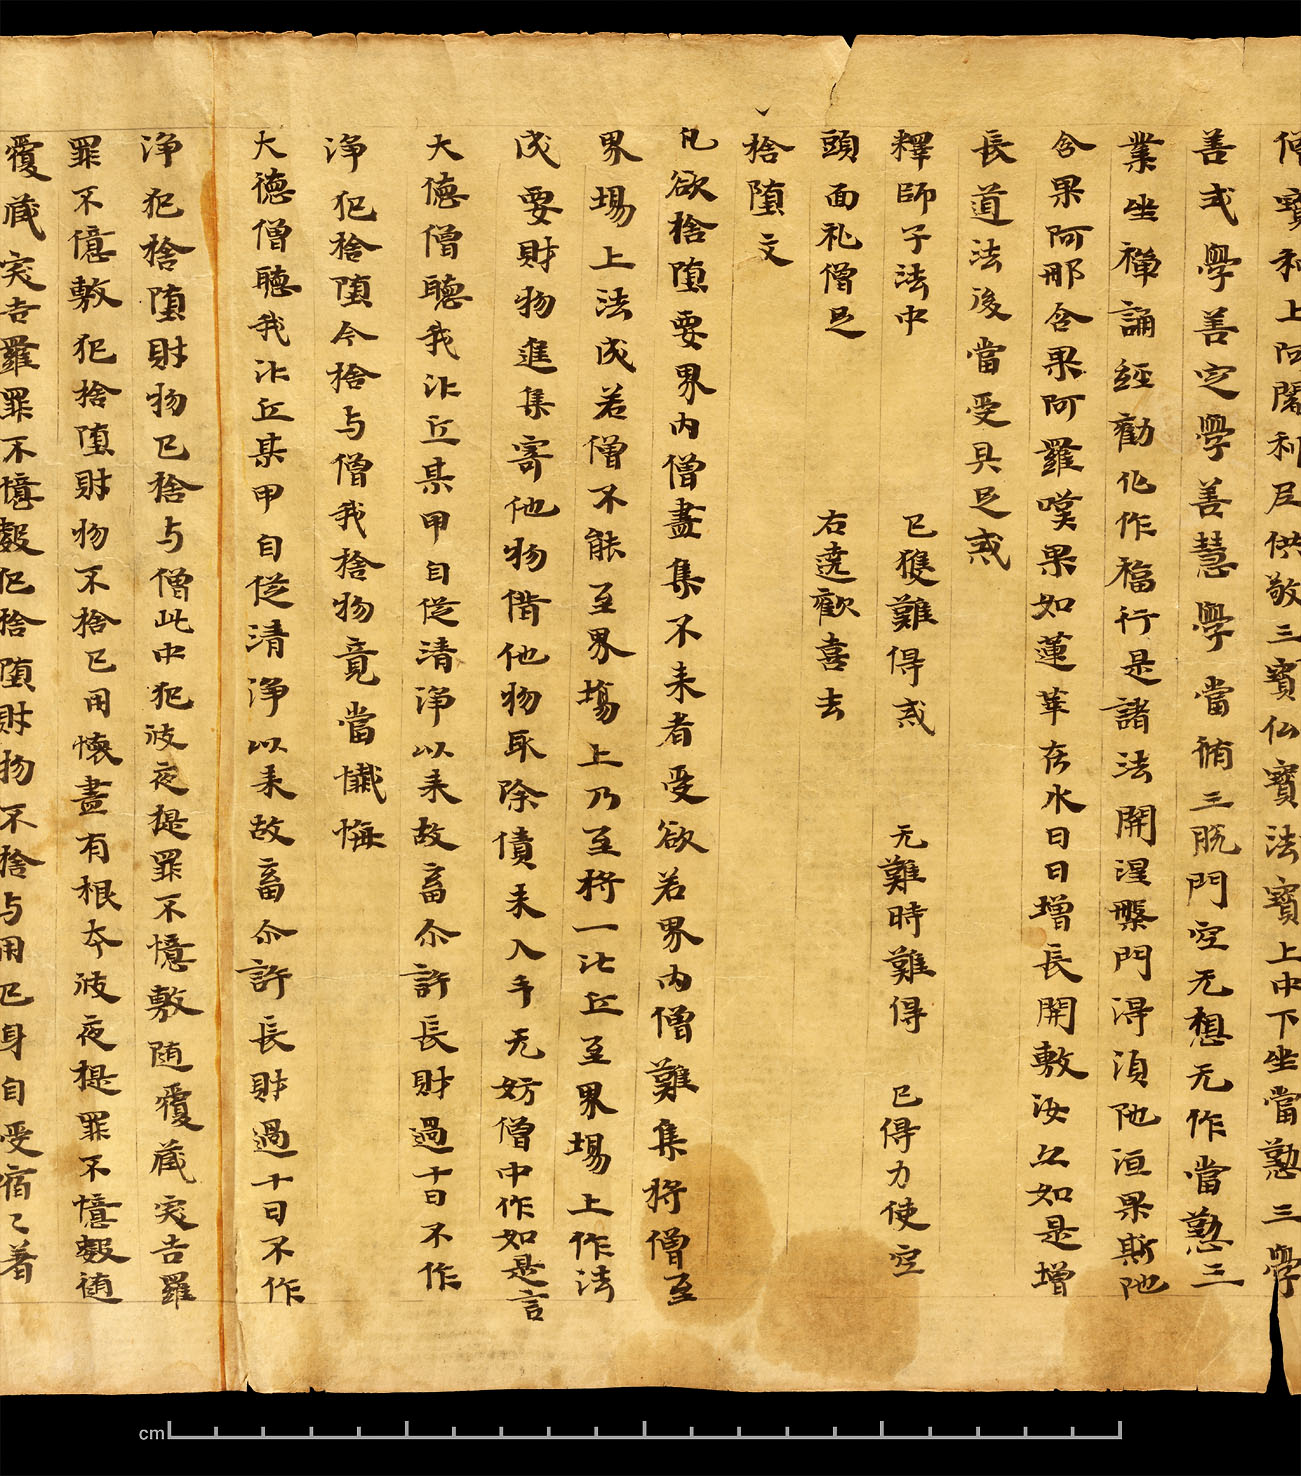 僧寶和上阿闍利尼供敬三寶仏寶法寶上中下坐當懃三學
善戒學善定學善慧學當脩三脫門空无想无作當懃三
業坐禅誦經勸化作福行是諸法開涅槃門得湏陁洹果斯陁
含果阿那含果阿羅嘆果如蓮華在水日日增長開敷汝亦如是增
長道法後當受具足戒
釋師子法中 已獲難得戒 无難時難得 已得力使空
頭面礼僧足 右遶歡喜去
捨墮文
凡欲捨墮要界內僧盡集不来者受欲若界內僧難集將僧至
界場上法成若僧不能至界場上乃至將一比丘至界場上作法
成要財物進集寄他物借他物取除債未入手无妨僧中作如是言
大德僧聽我比丘某甲自從清淨以来故畜尒許長財過十日不作
淨犯捨墮今捨与僧我捨物竟當懺悔
大德僧聽我比丘某甲自從清淨以来故畜尒許長財過十日不作
淨犯捨墮財物已捨与僧此中犯波夜提罪不憶數随覆藏突吉羅
罪不億數犯捨墮財物不捨已用懷盡有根本波夜提罪不憶數随
覆藏突吉羅罪不憶數犯捨墮財物不捨与用已身自受宿〻著